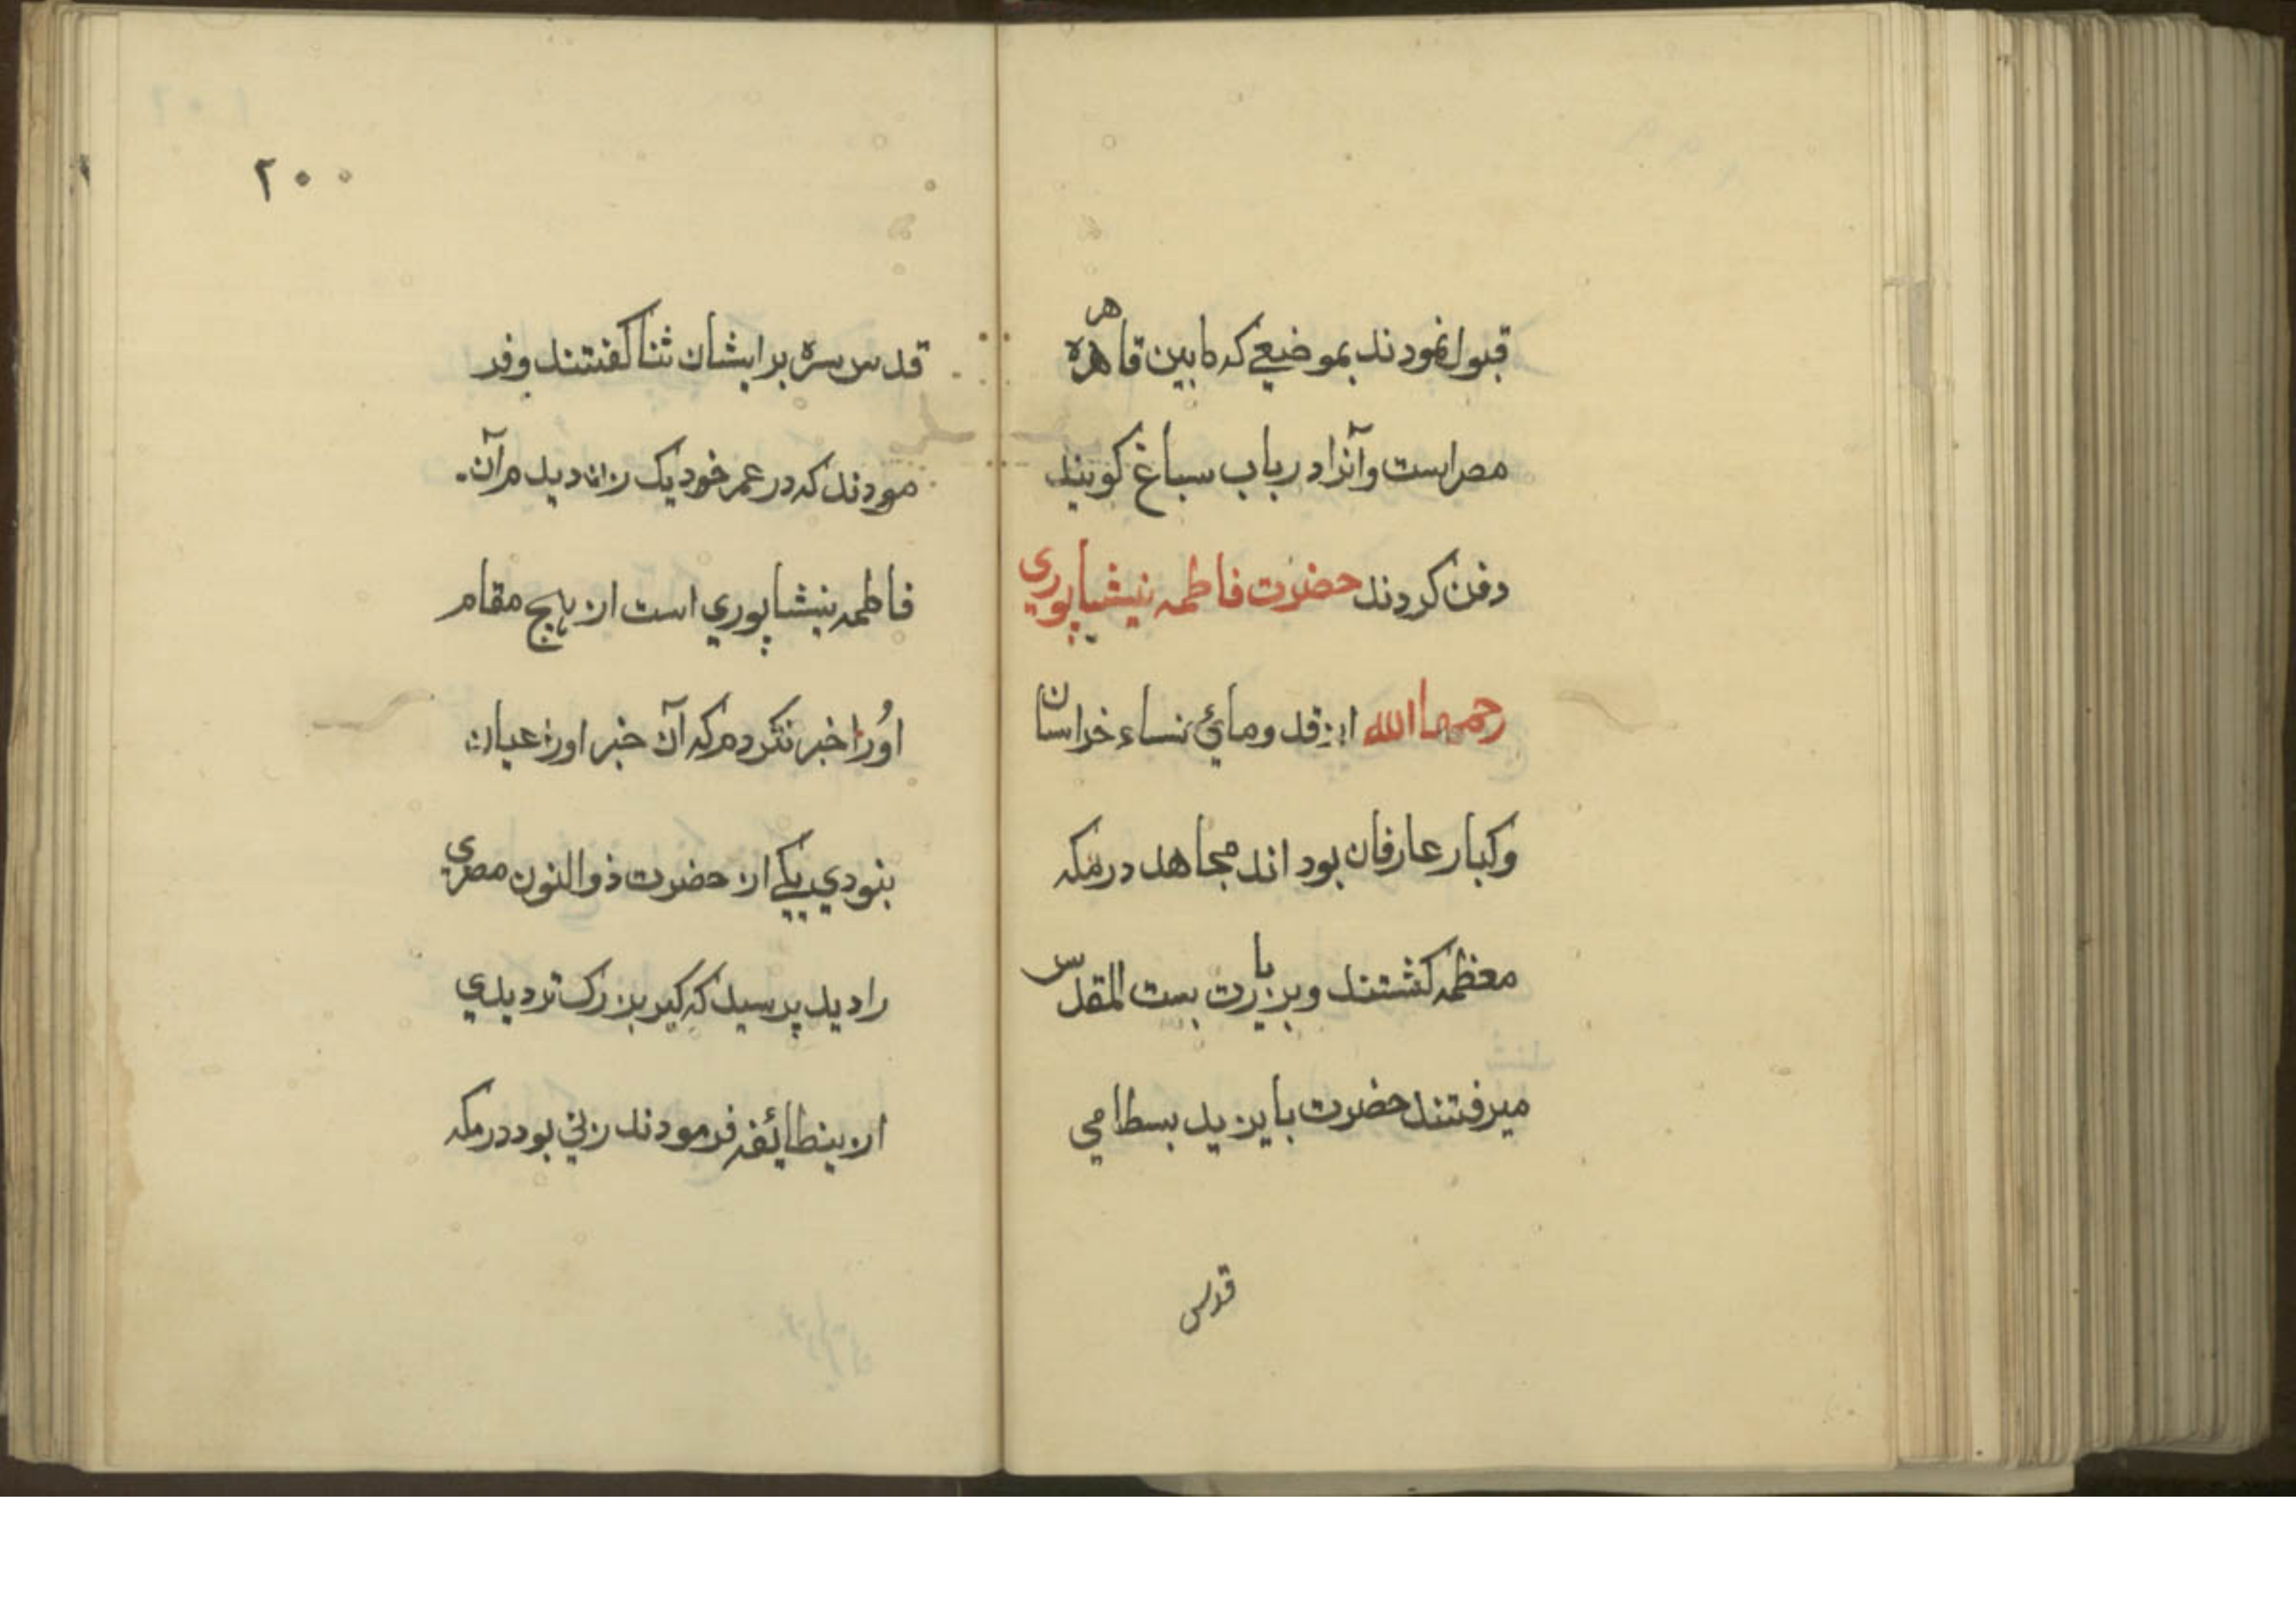 قبول نمودند بموضعے كه مابين قاهره
مصر است و آنرا درباب سباغ كويند
دفن كردند حضرت فاطمه نيشاپوري
رحمها الله از قدومائ نساء خراسان
وكبار عارفان بود اند مجاهد در مكه
معظمه كشتند وبزيارت بيت المقدس
ميرفتند حضرت بايزيد بسطامي
قدس
٢٠٠
قدس سره بر ايشان ثنا كفتند وفر
مودند كه در عمر خود يک زن ديدم آن
فاطمه نيشاپوري است از هيچ مقام
اورا خبر نكردم كه آن خبر اورا عيان
بنودي يكے از حضرت ذوالنون مصري
را ديد پرسيد كه كير بزرک تر ديدي
ازينطائفه فرمودند زني بود در مكه